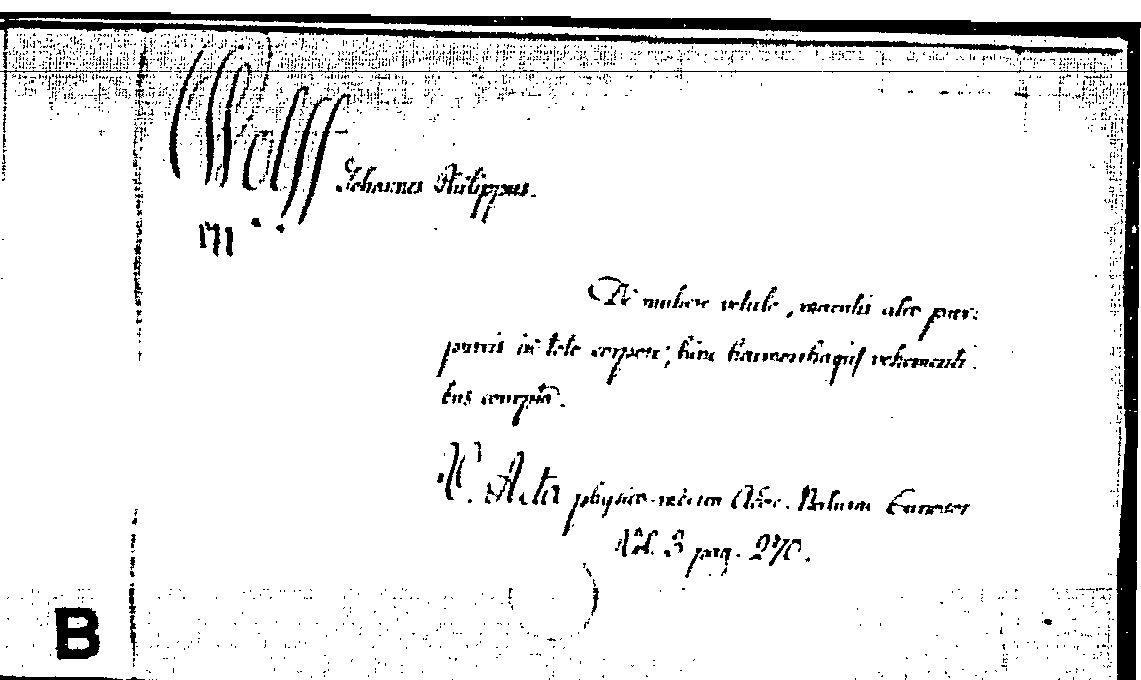 Wolff Johannes Philippus.
m..
De muliere vetula, maculis atro pur:
pureis in toto corpore; hinc haemorrhagiis vehementi:
bus
V. Acta physico-medica Acad. Naturae Curiosor
Vol. 3 pag. 270.
B